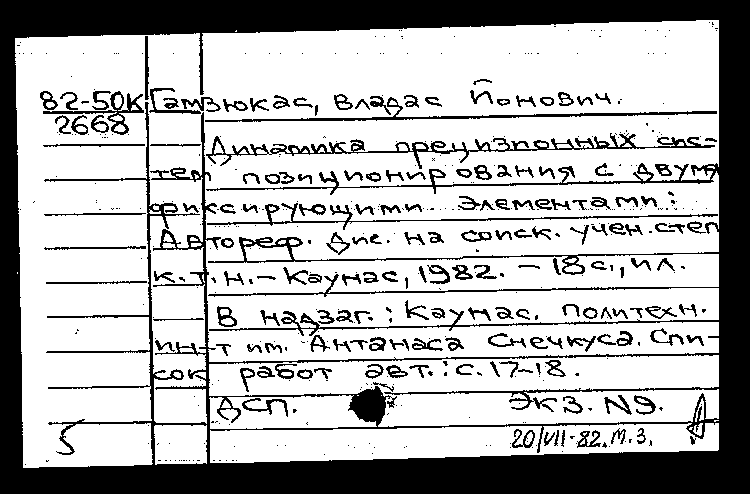 82-50К Гамзюкас, Владас Йонович.
2668
Динамика прецизионных сис-
тем позиционирования с двумя
фиксирующими элементами:
Автореф. дис. на соиск. учен. степ
к.т.н. - Каунас, 1982. - 18 с., ил.
В надзаг.: Каунас. политехн.
ин-т им. Антанаса Снечкуса. Спи-
сок работ авт.: с. 17-18.
ДСП. Экз. N9.
5 20/VII-82. М.З.